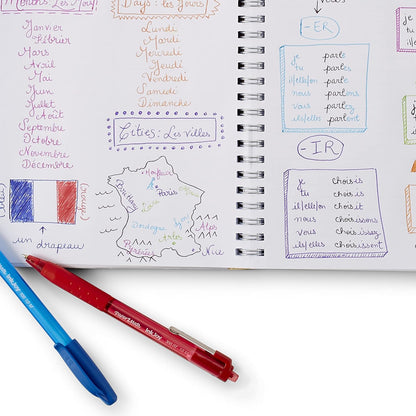 Days: les Jours
Janvier
Février
Mars
Avril
Mai
Juin
Juillet
Août
Septembre
Octobre
Novembre
Décembre
Lundi
Mardi
Mercredi
Jeudi
Vendredi
Samedi
Dimanche
Cities: Les Villes
Paris
Dordogne
Arles
Alps
Nice
Pyrénées
un drapeau
-ER
je parle
tu parles
il/elle/on parle
nous parlons
vous parlez
ils/elles parlent
-IR
je choisis
tu choisis
il/elle/on choisit
nous choisissons
vous choisissez
ils/elles choisissent
InkJoy